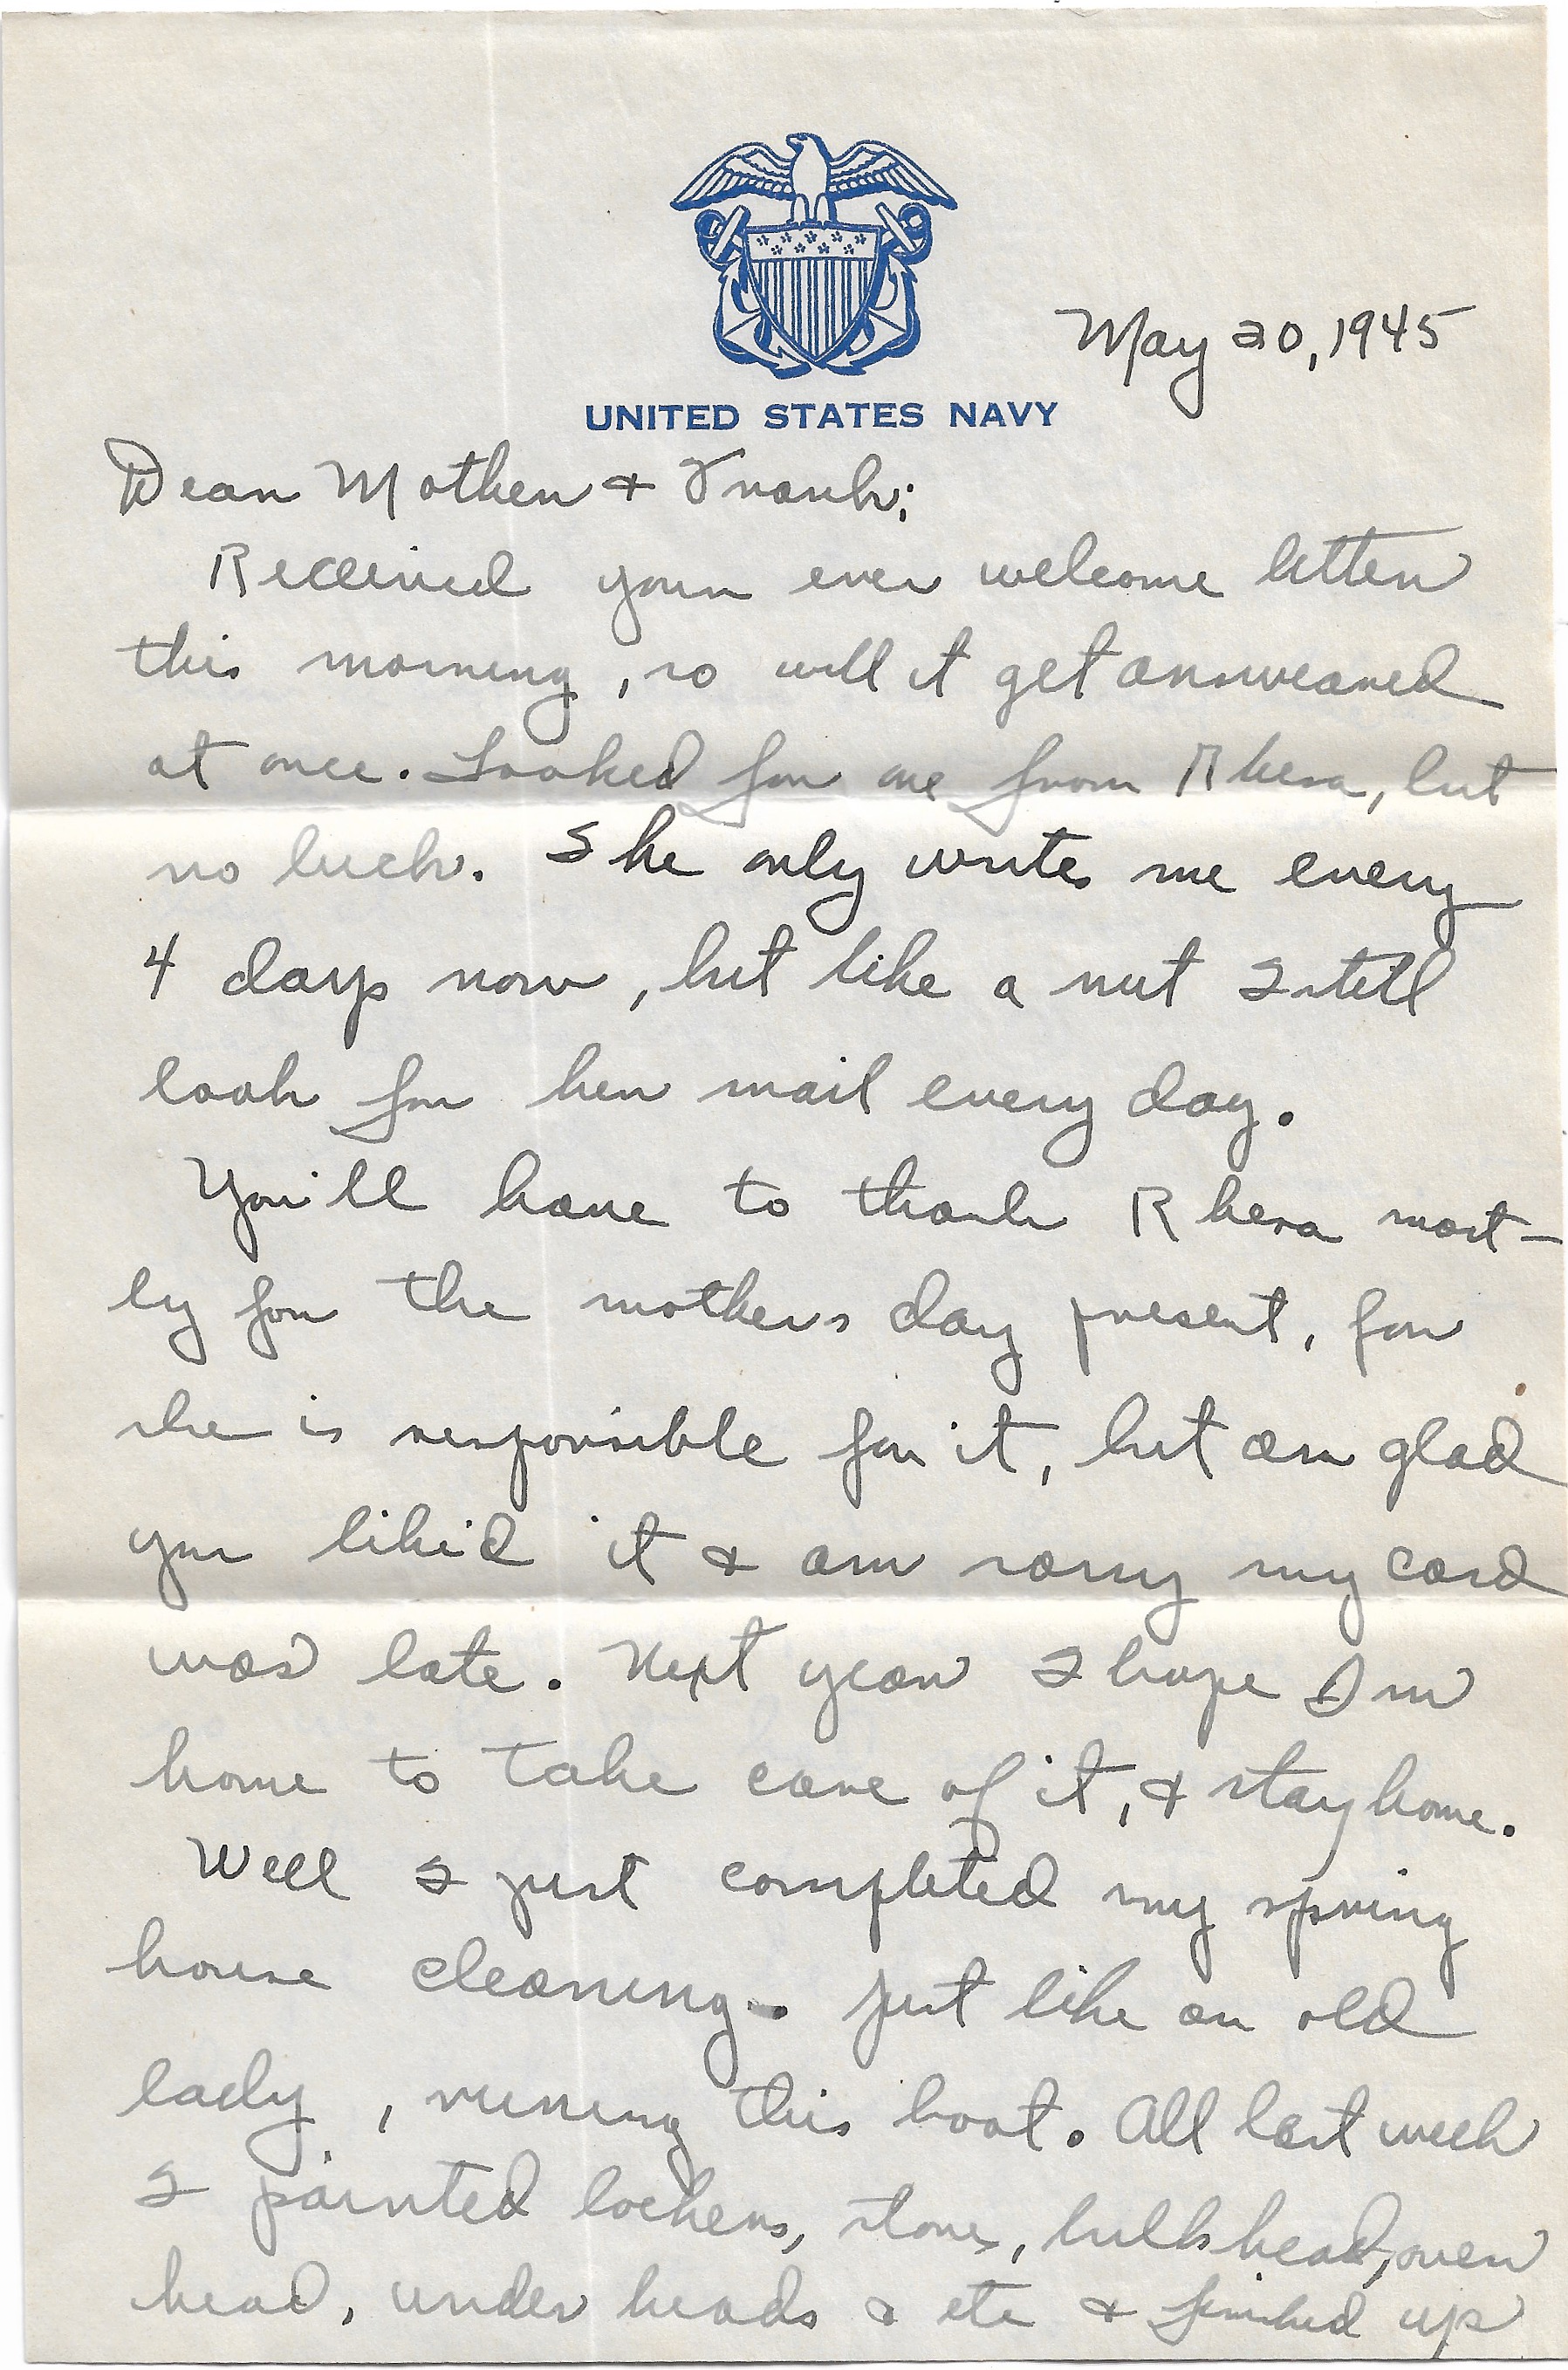 May 20, 1945
UNITED STATES NAVY
Dear Mother & Frank;
Received your ever welcome letter
this morning, so will it get answeared
at once. Looked for one from Rhea, but
no luck. She only writes me every
4 days now, but like a nut I still
look for her mail every day.
You'll have to thank Rhea most-
ly for the mothers day present, for
she is responsible for it, but am glad
you like'd it & am sorry my card
was late. Next year I hope I'm
home to take care of it, & stay home.
Well I just completed my spring
house cleaning. Just like an old
lady, runing this boat. All last week
I painted lockers, stove, bulkhead, over
head, under heads & etc & finished up